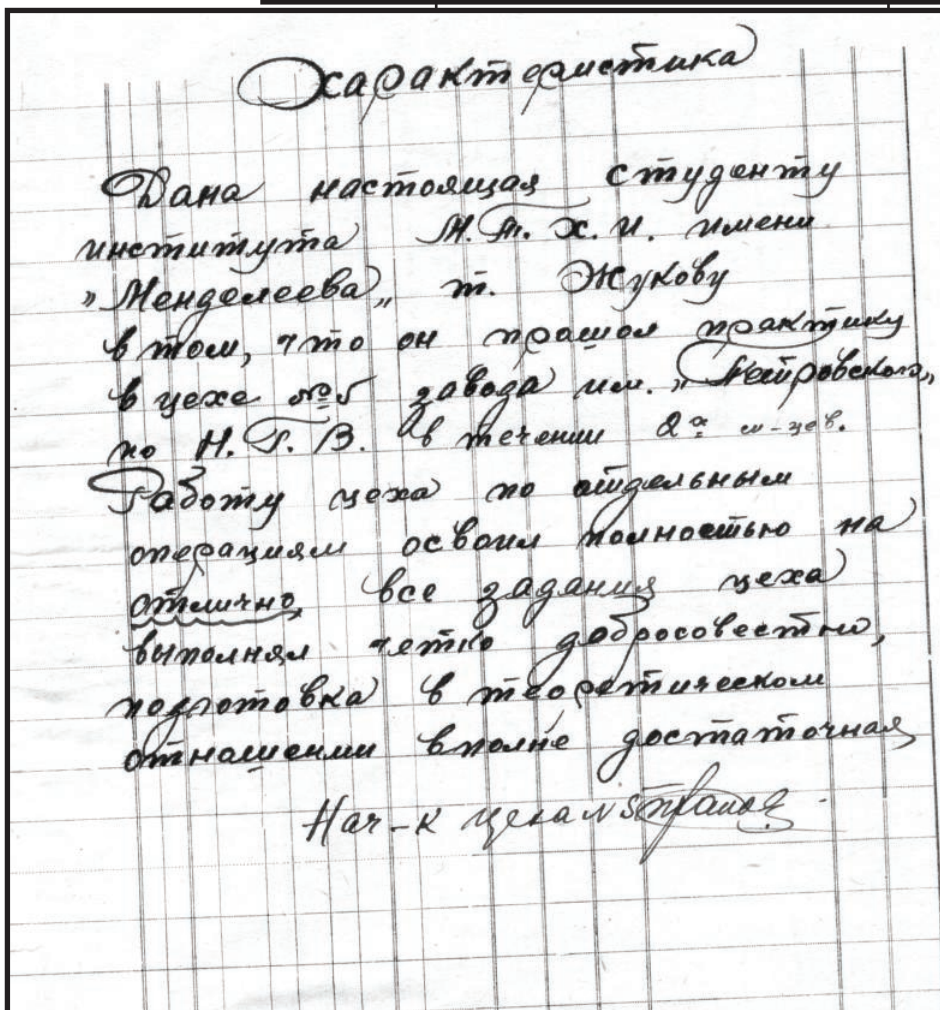 Характеристика
Дана настоящая студенту
института М.Т.Х.И. имени
„Менделеева„ т. Жукову
в том, что он прошол практику
в цехе №5 завода им. „Петровского„
по Н.Г.В. в течении 2х м-цев.
Работу цеха по отдельным
операциям освоил полностью на
отлично, все задания цеха
выполнял четко добросовестно,
подготовка в теоретическом
отношении вполне достаточная
Нач-к цеха №5